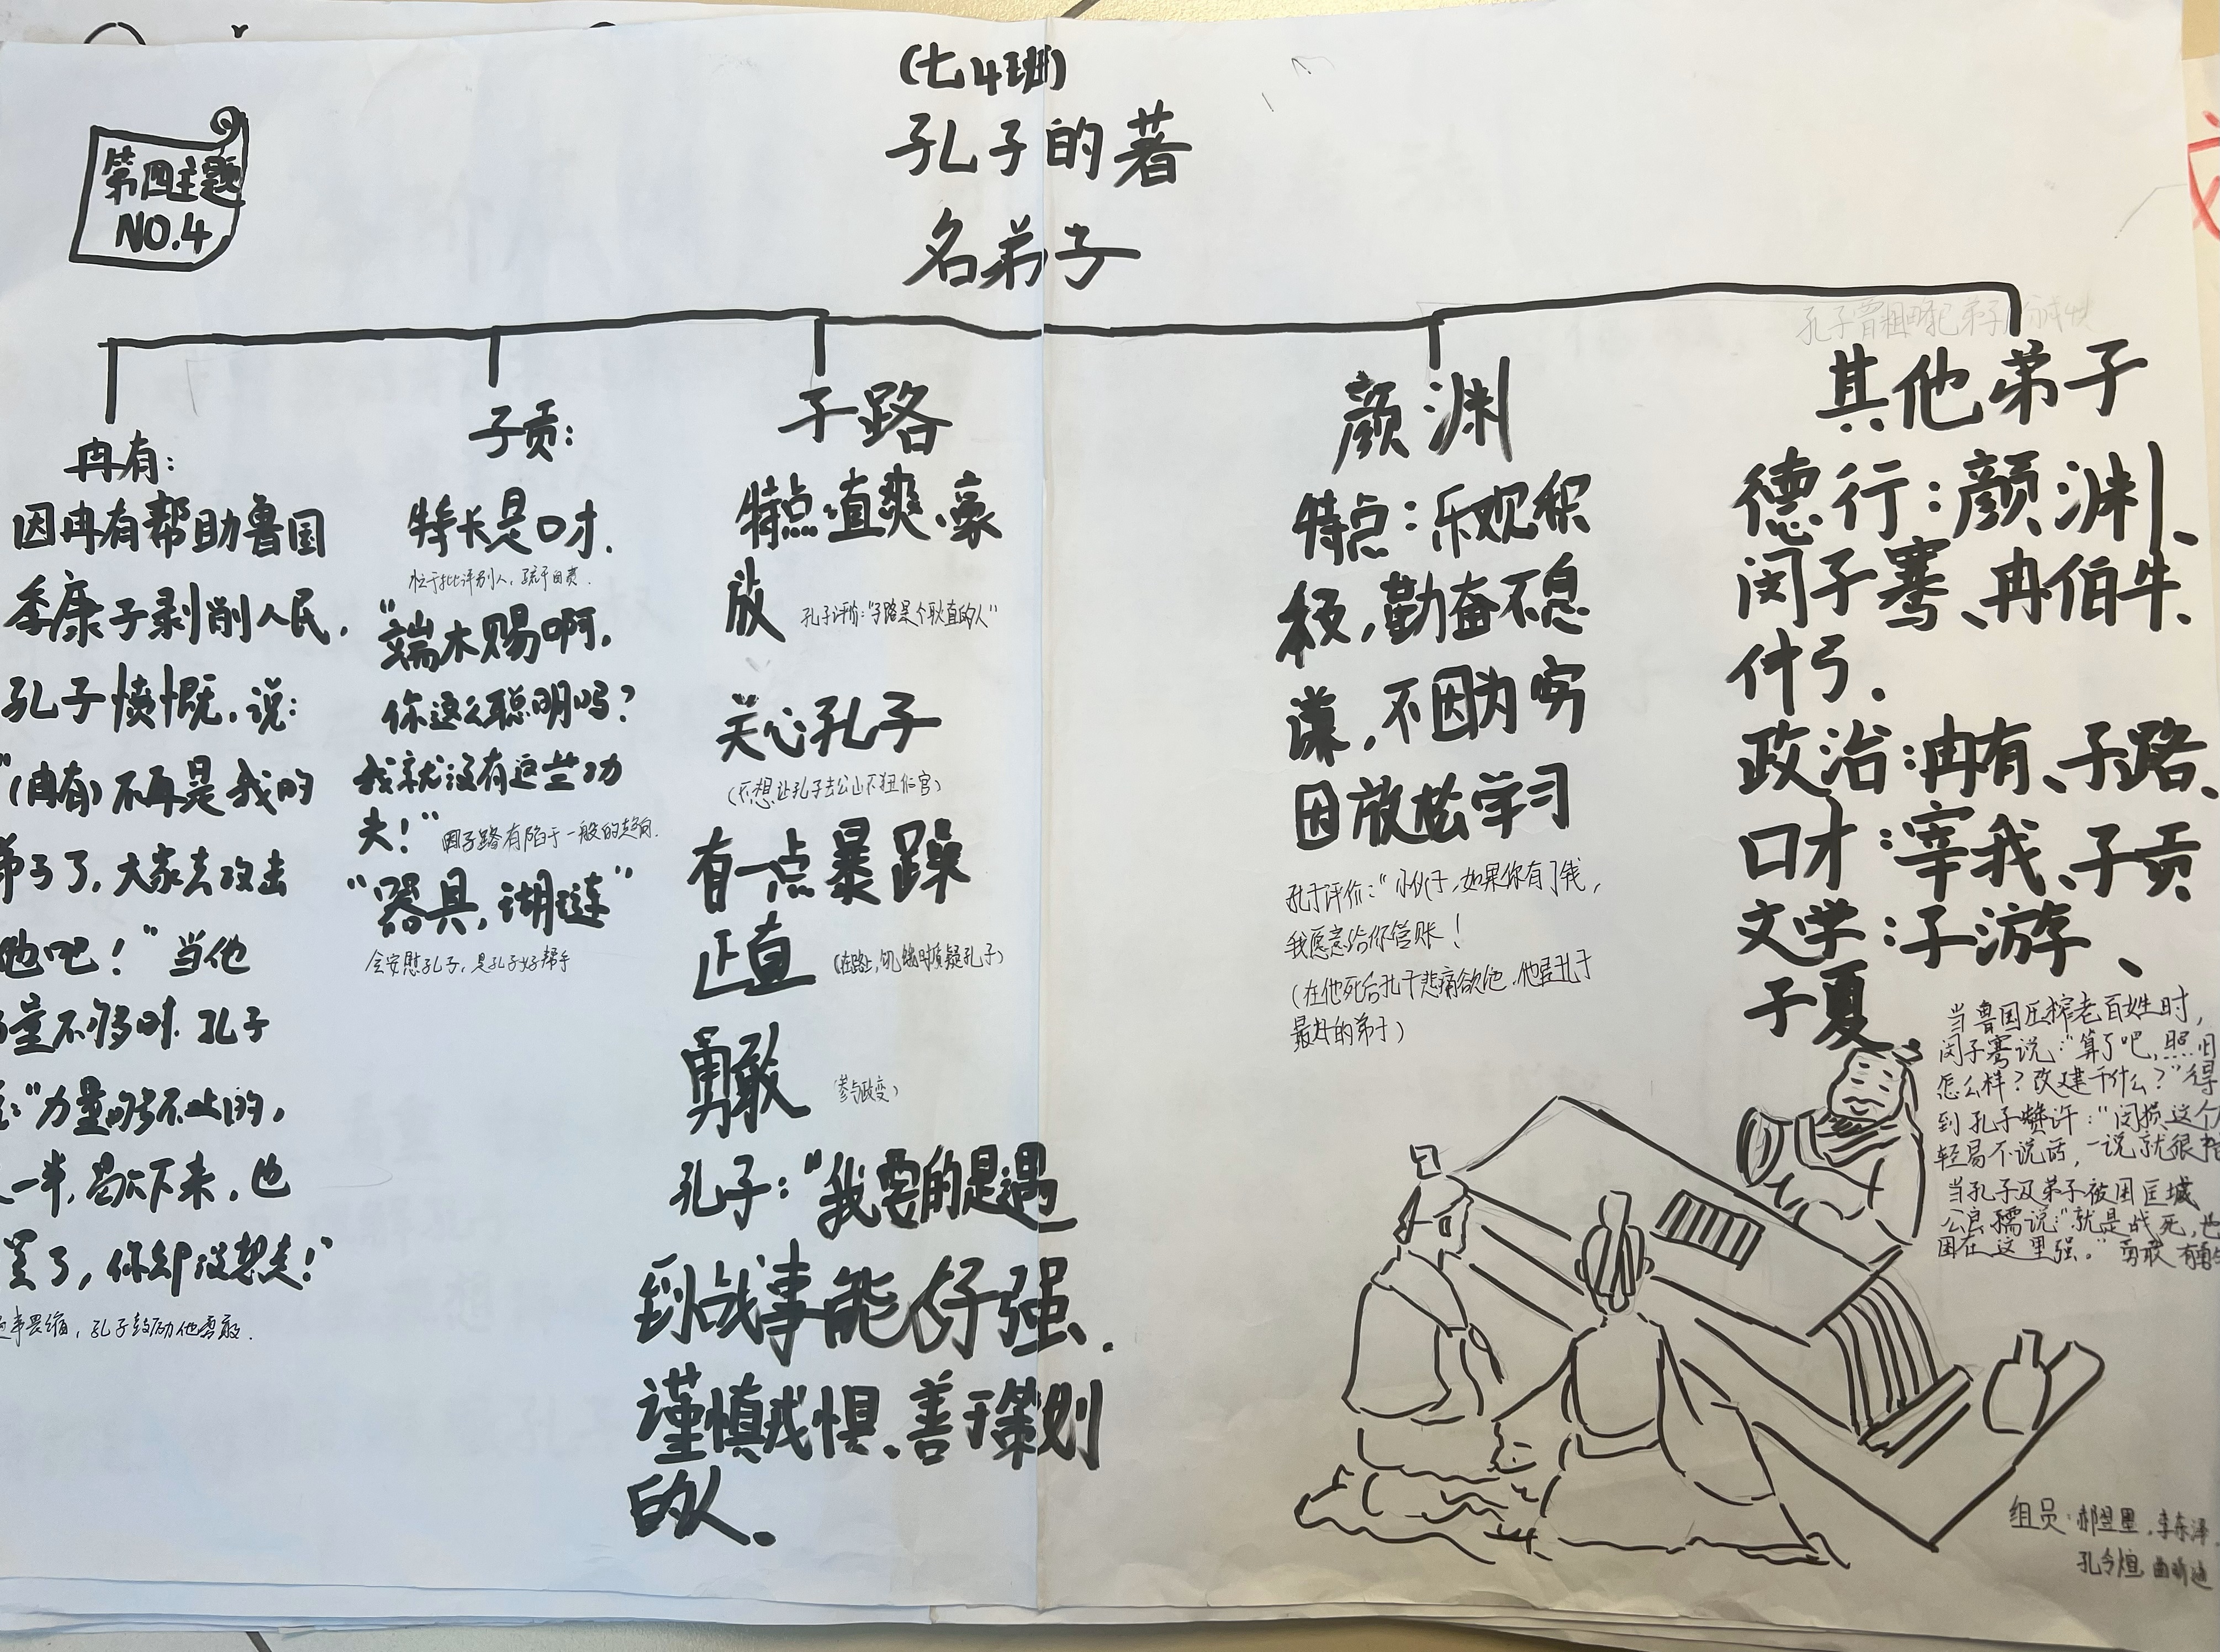 (七4班)
孔子的著
名弟子
第四主题
NO.4
冉有：
因冉有帮助鲁国
季康子剥削人民，
孔子愤慨，说：
"(冉有)不再是我的
弟子了，大家去攻击
他吧！"当他
力量不够时，孔子
说："力量的够不止的，
一半，歇下来，也
罢了，你却没想走！"
遇事畏缩，孔子鼓励他勇敢．
子贡：
特长是口才．
忙于批评别人，疏于自责．
"端木赐啊，
你这么聪明吗？
我就没有这些功
夫！"
因子路有陷于一般的趋向．
"器具，瑚琏"
会安慰孔子，是孔子好帮手
子路
特点：直爽、豪
放 孔子评价："子路是个耿直的人"
关心孔子
(不想让孔子去公山不狃作官)
有一点暴躁
正直 (在路上，饥饿时质疑孔子)
勇敢 (参与政变)
孔子："我要的是遇
到战事能仔强、
谨慎戒惧、善于策划
的人。
颜渊
特点：乐观积
极，勤奋不息
谦，不因为穷
因放松学习
孔子评价："小伙子，如果你有了钱，
我愿意给你管账！
(在他死后孔子悲痛欲他，他是孔子
最好的弟子)
孔子曾粗略把弟子分成
其他弟子
德行：颜渊、
闵子骞、冉伯牛、
什弓．
政治：冉有、子路、
口才：宰我、子贡
文学：子游、
子夏
当鲁国压榨老百姓时，
闵子骞说："算了吧，照旧
怎么样？改建干什么？"得
到孔子赞许："闵损这个
轻易不说话，一说就很
当孔子及弟子被困匡城
公良孺说："就是战死，也
困在这里强。"勇敢
组员：郝翌墨，李东泽，
孔令煊